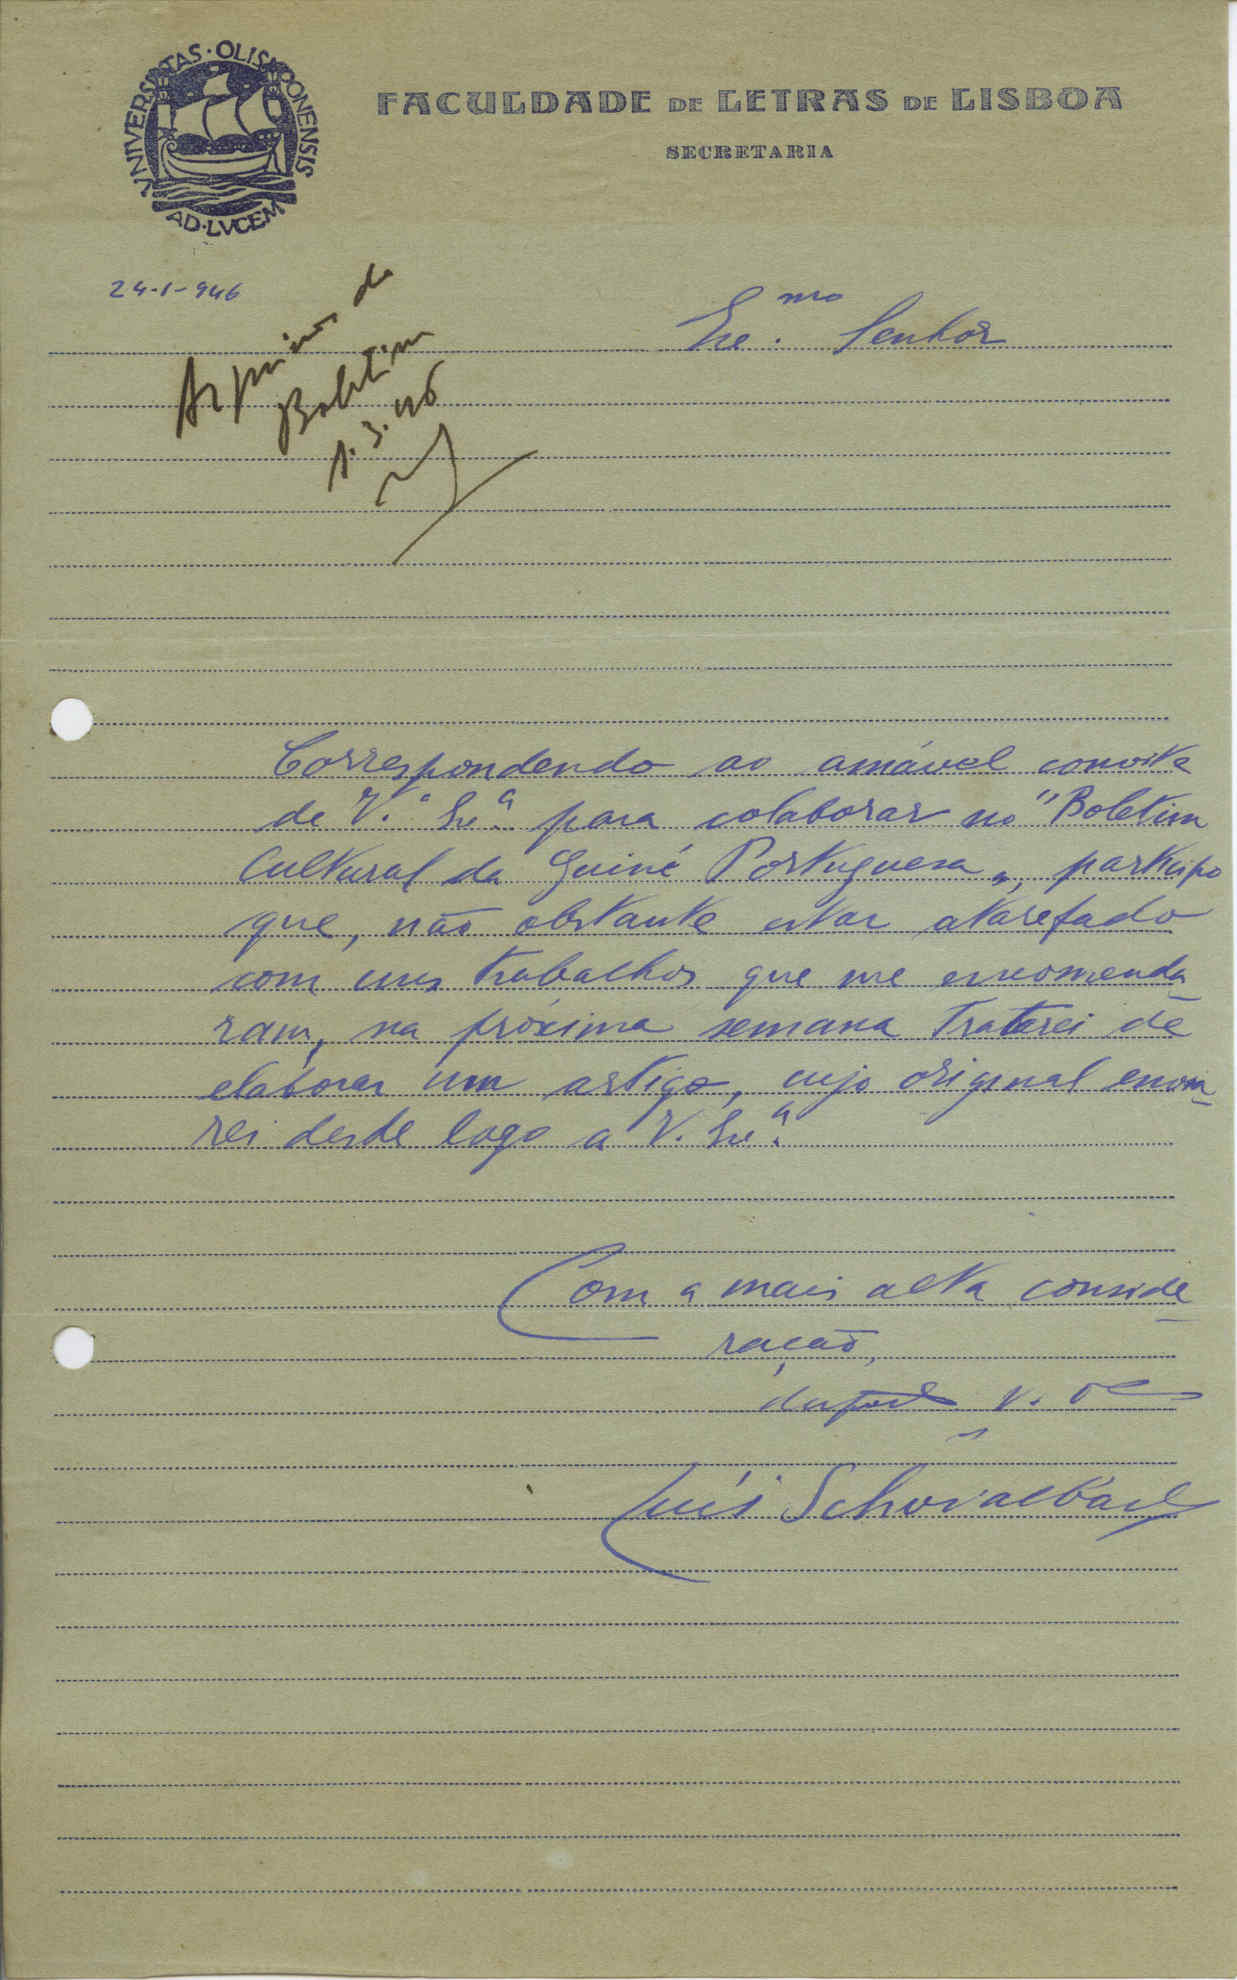 VNIVERSITAS · OLISIPONENSIS
AD · LVCEM
FACULDADE DE LETRAS DE LISBOA
SECRETARIA
24-1-946
do
Boletim
1.3.46
Exc.mo Senhor
Correspondendo ao amável convite
de V.ª Ex.ª para colaborar no "Boletim
Cultural da Guiné Portuguesa", participo
que, não obstante estar atarefado
com uns trabalhos que me encomenda-
ram, na próxima semana tratarei de
elaborar um artigo, cujo original envia-
rei desde logo a V. Ex.ª
Com a mais alta conside-
ração,
Luís Schwalbach